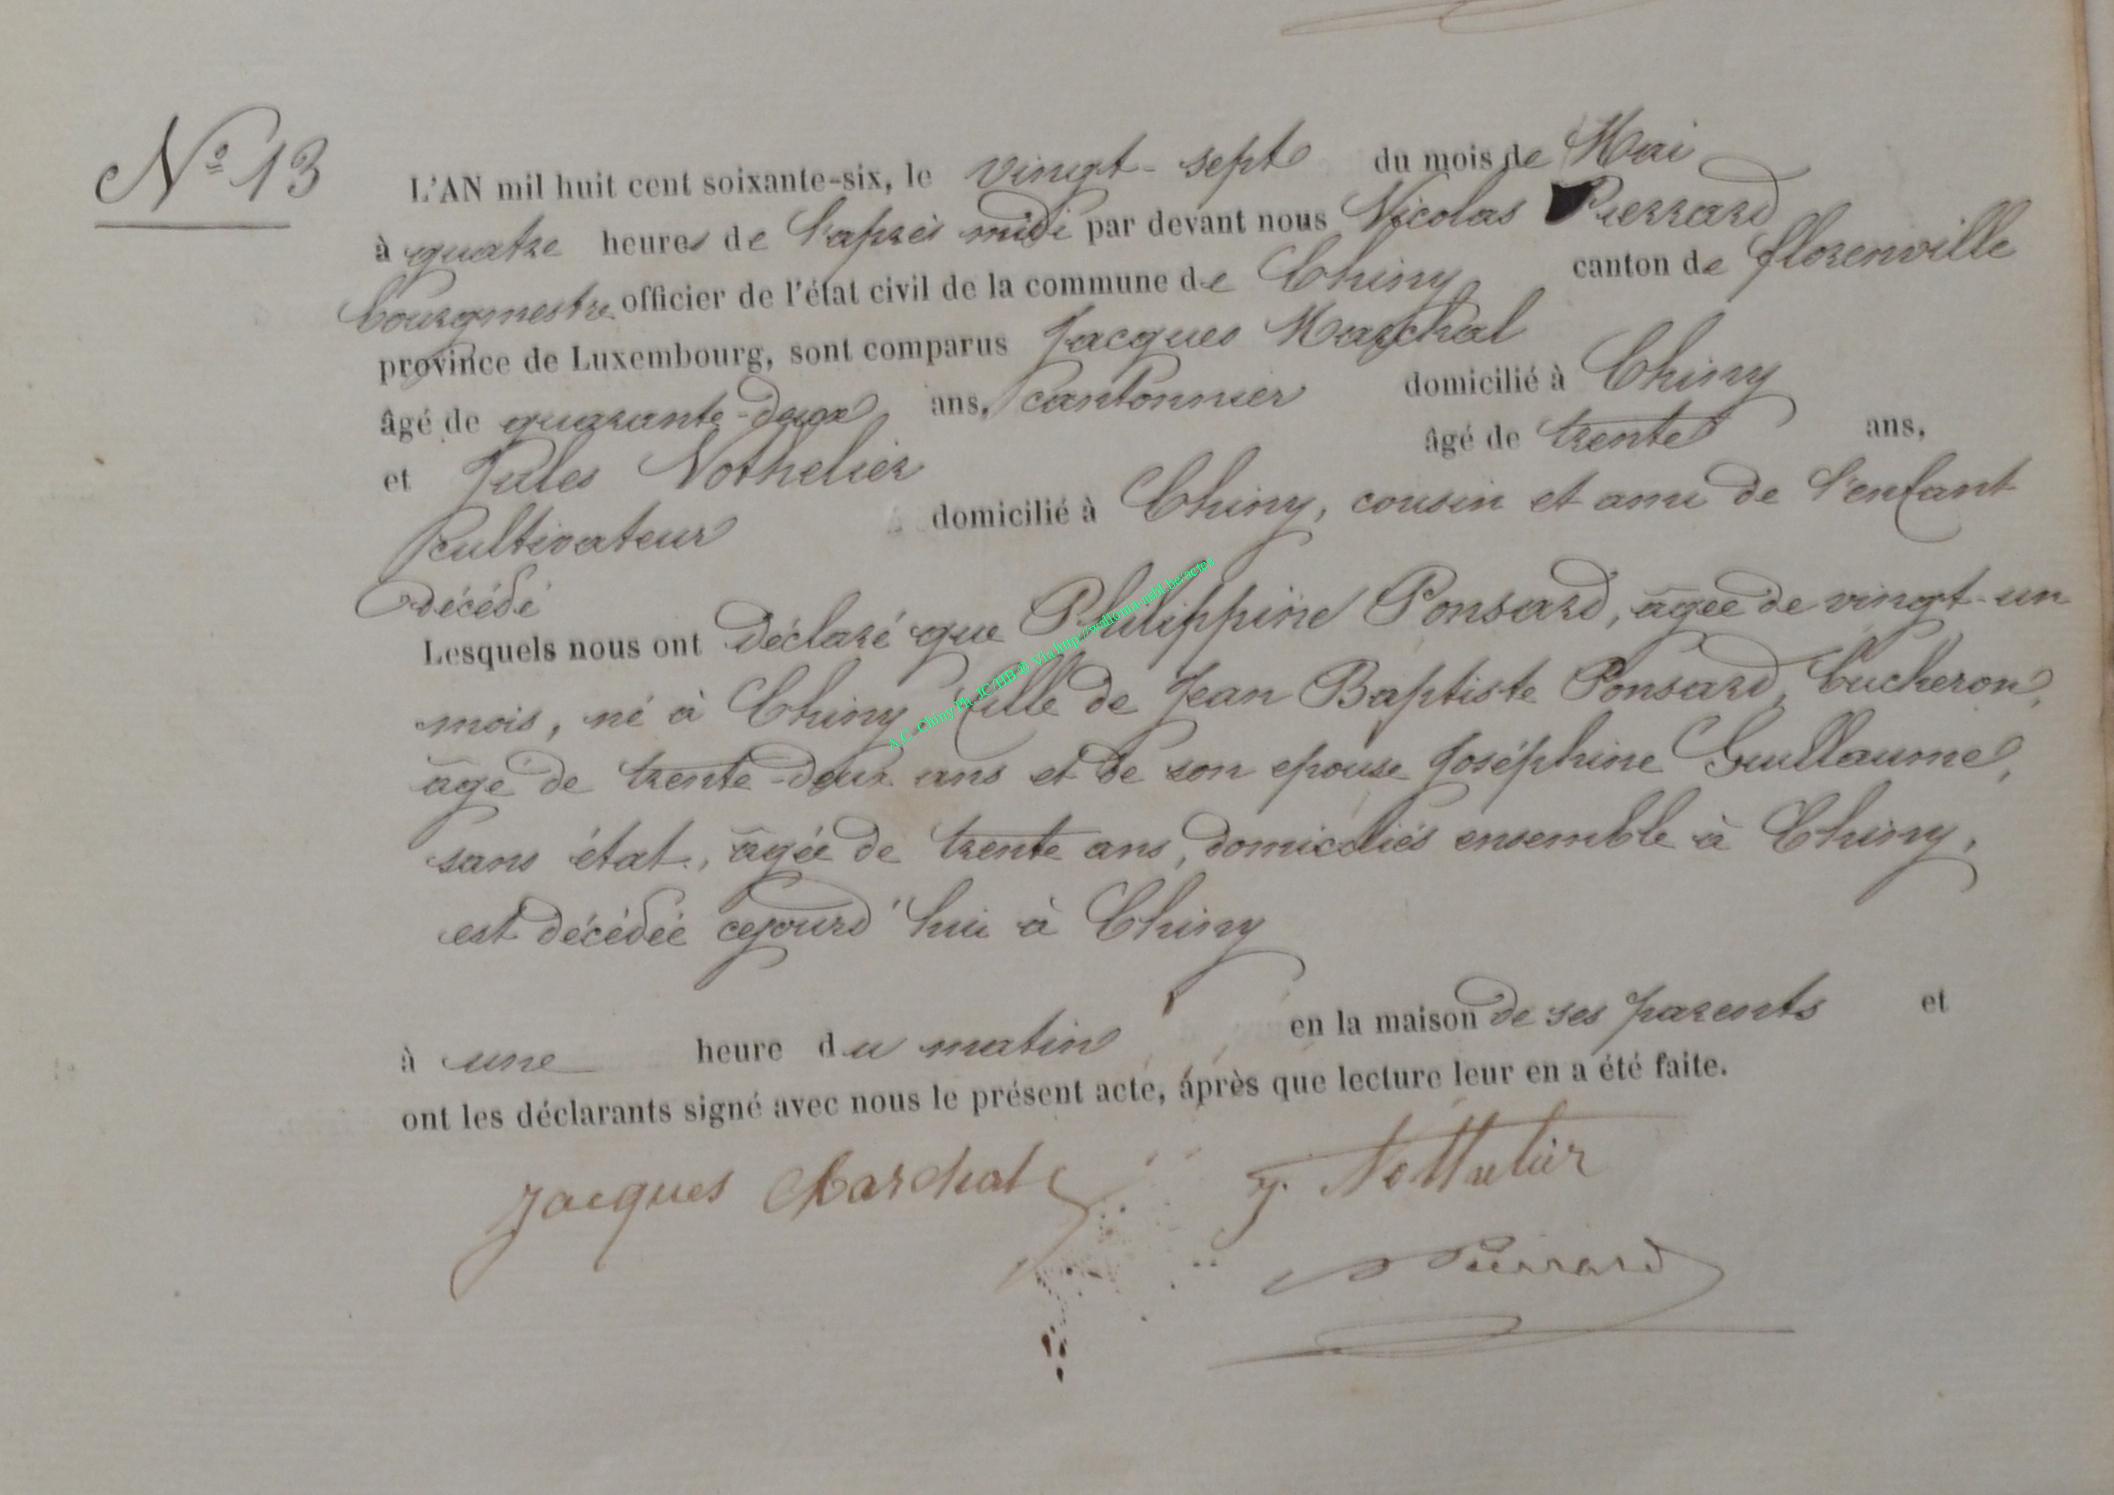 N° 13
L'AN mil huit cent soixante-six, le vingt-sept du mois de Mai
à quatre heures de l'après midi par devant nous Nicolas Pierrard
bourgmestre officier de l'état civil de la commune de Chiny canton de florenville
province de Luxembourg, sont comparus Jacques Marchal
âgé de quarante-deux ans, cantonnier domicilié à Chiny
et Jules Nothelier âgé de trente ans,
cultivateur domicilié à Chiny, cousin et ami de l'enfant
décédé
Lesquels nous ont déclaré que Philippine Ponsard, agée de vingt-un
mois, né à Chiny, fille de Jean Baptiste Ponsard, bucheron,
âgé de trente-deux ans et de son epouse Joséphine Guillaume,
sans état, âgée de trente ans, domiciliés ensemble à Chiny,
est décédée cejourd'hui à Chiny
à une heure du matin en la maison de ses parents et
ont les déclarants signé avec nous le présent acte, après que lecture leur en a été faite.
Jacques Marchal J. Nothelier
N Pierrard
A.C. Chiny Ph JC/HB © Via http://wallonia-mbl.be/actes